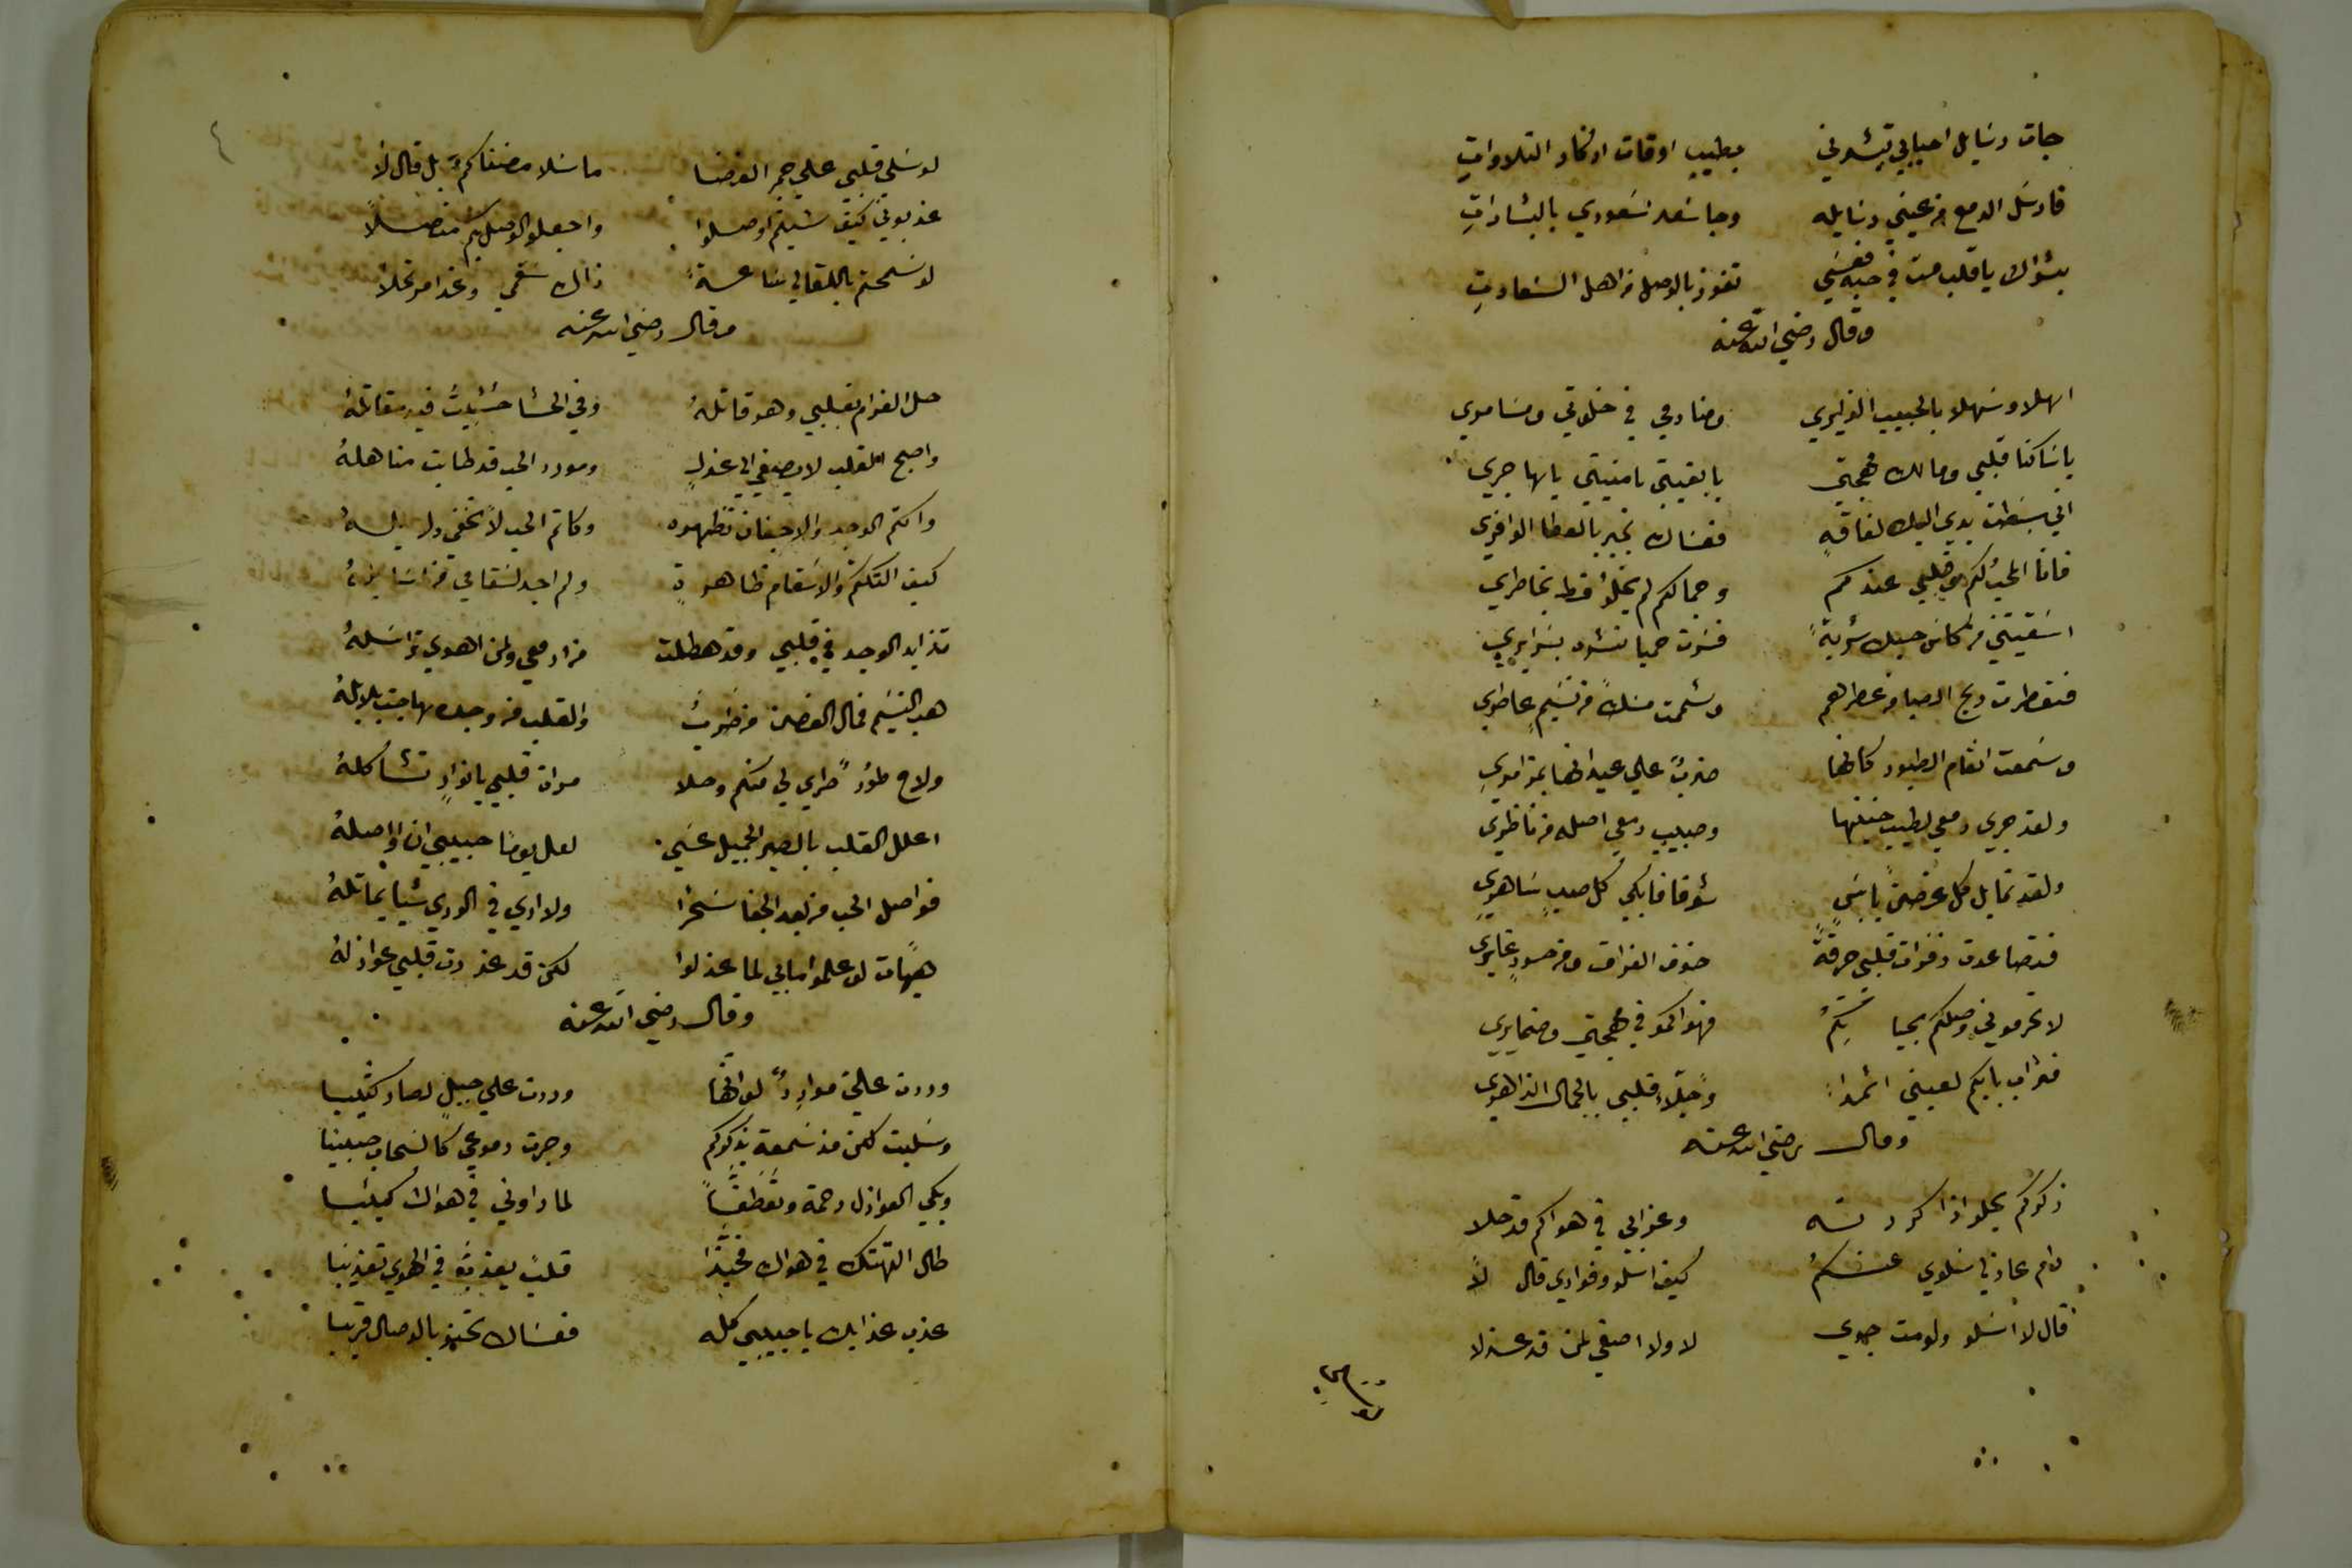 جات رسَايل احبابي تبشرني بطيب اوقات اذكار التلاواتِ
فارسَل الدمع من عيني رسَايله وجا سَعد سَعودي بالبشاراتِ
بشراك يا قلب مت في حبه فعسَي تفوز بالوصل من اهل السَعادتِ
وقال رضي الله عنه
اهلا وسَهلا بالحبيب الزايري ومنادمي في خلوتي ومسَامري
يا سَاكنا قلبي ومالك مهجتي يا بغيتي يا منيتي يا هاجري
اني بسَطت يدي اليك لفاقةٍ فعسَاك تجبر بالعطا الوافري
فانا المحب لكم وقلبي عندكم وجمالكم لم يخلو قط بخاطري
اسَقيتني من كاس حبك شربةً فسَرت حميا تنشر بسَرايري
فتعطرت ريح الصبا من عطرهم وشممت مسك من نسَيمٍ عاطري
وسَمعت انغام الطيور كانها ضربٌ علي عيدانها بمزامري
ولقد جري دمعي لطيب حنينها وصبيب دمعي اصله من ناظري
ولقد تمايل كل غصنٍ يابسَ شوقا فابكي كل صب سَاهري
فتصاعدت زفرات قلبي حرقةً خوف الفراق ومن حسود غايري
لا تحرموني وصلكم بحياتكم فهواكمو في مهجتي وضمايري
فتراب بابكم لعيني اثمداً وجلاء قلبي بالجمال الزاهري
وقال رضي الله عنه
ذكركم يحلو اذا كررته وعذابي في هواكم قد حلا
رام عاذلي سَلوي عنكم كيف اسَلو وفوادي قال لا
قال لا اسَلو ولو مت جوي لا ولا اصغي لمن قد عذلا
لو سَلي قلبي علي جمر الغضا ما سَلا مضناكم بل قال لا
عذبوني كيف شيتم اوصلوا واجعلوا لوصل بكم متصلاً
لو سَمحتم باللقا لي سَاعةً زال سَقمي وغدا مرتحلا
وقال رضي الله عنه
حل الغرام بقلبي وهو قاتلهُ وفي الحشا فيه مقاتلهُ
واصبح القلب لا يصغي الي عذلٍ ومورد الحب قد طابت مناهلهُ
واكتم الوجد والاجفان تظهره وكاتم الحب لا تخفي دلايلهُ
كيف التكتم والاسَقام ظاهرةٍ ولم اجد لسَقامي من اسَايلهُ
تزايد الوجد في قلبي وقد هطلت مزادمعي ولمن اهوي تراسَلهُ
هب النسَيم فمال الغصن من طربٍ والقلب من وجده هاجت بلابلهُ
ولاح طورٌ طراي لي منكم وحلا مرات قلبي بانوارٍ تشاكلهُ
اعلل القلب بالصبر الجميل عسَي لعل يومًا حبيبي ان اواصلهُ
فواصل الحب من بعد الجفا سَحرا ولا اري في الوري شيا يماثلهُ
هيهات لو علموا ما بي لما عذلوا لكن قد عذرت قلبي عواذلهُ
وقال رضي الله عنه
وردت علي مواردٌ لو انها وردت علي جبلٍ لصار كثيبا
وسَلبت كلي مذ سَمعت بذكركم وجرت دموعي كالسَحاب صبيبا
وبكي العواذل رحمة وتعطفاً لما راوني في هواك كييبا
طال التهتك في هواك فخيذا قلب يعذبه في الهوي تعذيبا
عذب عذابك يا حبيبي كله فعسَاك تحيو بالوصال قريبا